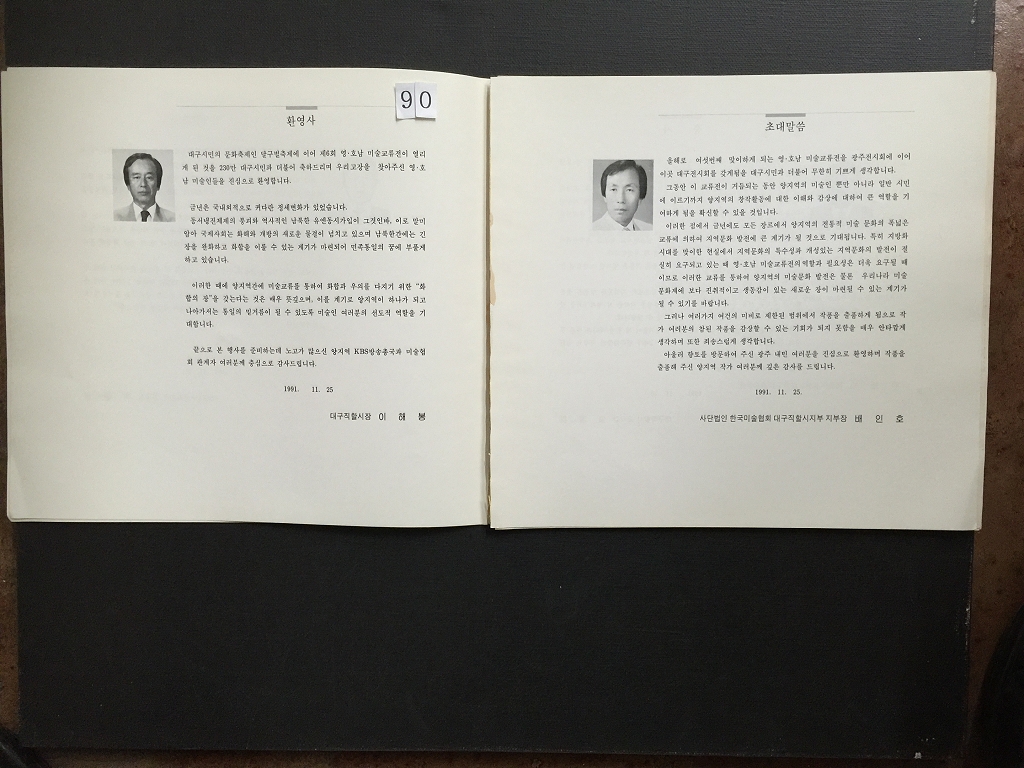 90
환영사
대구시민의 문화축제인 달구벌축제에 이어 제6회 영·호남 미술교류전이 열리
게 된 것을 230만 대구시민과 더불어 축하드리며 우리고장을 찾아주신 영·호
남 미술인들을 진심으로 환영합니다.
금년은 국내외적으로 커다란 정세변화가 있었습니다.
동서냉전체제의 붕괴와 역사적인 남북한 유엔동시가입이 그것인바, 이로 말미
암아 국제사회는 화해와 개방의 새로운 물결이 넘치고 있으며 남북한간에는 긴
장을 완화하고 화합을 이룰 수 있는 계기가 마련되어 민족통일의 꿈에 부풀게
하고 있습니다.
이러한 때에 양지역간에 미술교류를 통하여 화합과 우의를 다지기 위한 “화
합의 장”을 갖는다는 것은 매우 뜻깊으며, 이를 계기로 양지역이 하나가 되고
나아가서는 통일의 밑거름이 될 수 있도록 미술인 여러분의 선도적 역할을 기
대합니다.
끝으로 본 행사를 준비하는데 노고가 많으신 양지역 KBS방송총국과 미술협
회 관계자 여러분께 충심으로 감사드립니다.
1991. 11. 25
대구직할시장 이 해 봉
초대말씀
올해로 여섯번째 맞이하게 되는 영·호남 미술교류전을 광주전시회에 이어
이곳 대구전시회를 갖게됨을 대구시민과 더불어 무한히 기쁘게 생각합니다.
그동안 이 교류전이 거듭되는 동안 양지역의 미술인 뿐만 아니라 일반 시민
에 이르기까지 양지역의 창작활동에 대한 이해와 감상에 대하여 큰 역할을 기
여하게 됨을 확신할 수 있을 것입니다.
이러한 점에서 금년에도 모든 장르에서 양지역의 전통적 미술 문화의 폭넓은
교류에 의하여 지역문화 발전에 큰 계기가 될 것으로 기대됩니다. 특히 지방화
시대를 맞이한 현실에서 지역문화의 특수성과 개성있는 지역문화의 발전이 절
실히 요구되고 있는 때 영·호남 미술교류전의역할과 필요성은 더욱 요구될 때
이므로 이러한 교류를 통하여 양지역의 미술문화 발전은 물론 우리나라 미술
문화계에 보다 진취적이고 생동감이 있는 새로운 장이 마련될 수 있는 계기가
될 수 있기를 바랍니다.
그러나 여러가지 여건의 미비로 제한된 범위에서 작품을 출품하게 됨으로 작
가 여러분의 참된 작품을 감상할 수 있는 기회가 되지 못함을 매우 안타깝게
생각하며 또한 죄송스럽게 생각합니다.
아울러 향토를 방문하여 주신 광주 내빈 여러분을 진심으로 환영하며 작품을
출품해 주신 양지역 작가 여러분께 깊은 감사를 드립니다.
1991. 11. 25.
사단법인 한국미술협회 대구직할시지부 지부장 배 인 호